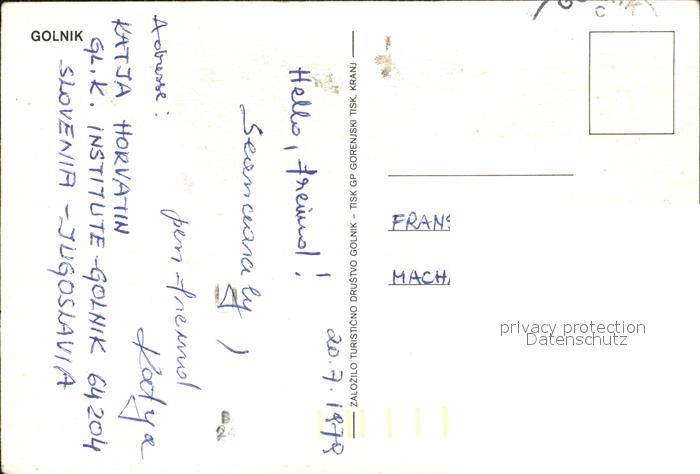 GOLNIK
20.7.1978
Hello, freind!
Seancearaly,
pen-freind
Katya
Adresse:
KATJA HORVATIN
GL.K. INSTITUTE-GOLNIK 64204
SLOVENIA - JUGOSLAVIA
ZALOŽILO TURISTIČNO DRUŠTVO GOLNIK – TISK GP GORENJSKI TISK, KRANJ
FRANS
MACH
privacy protection
Datenschutz